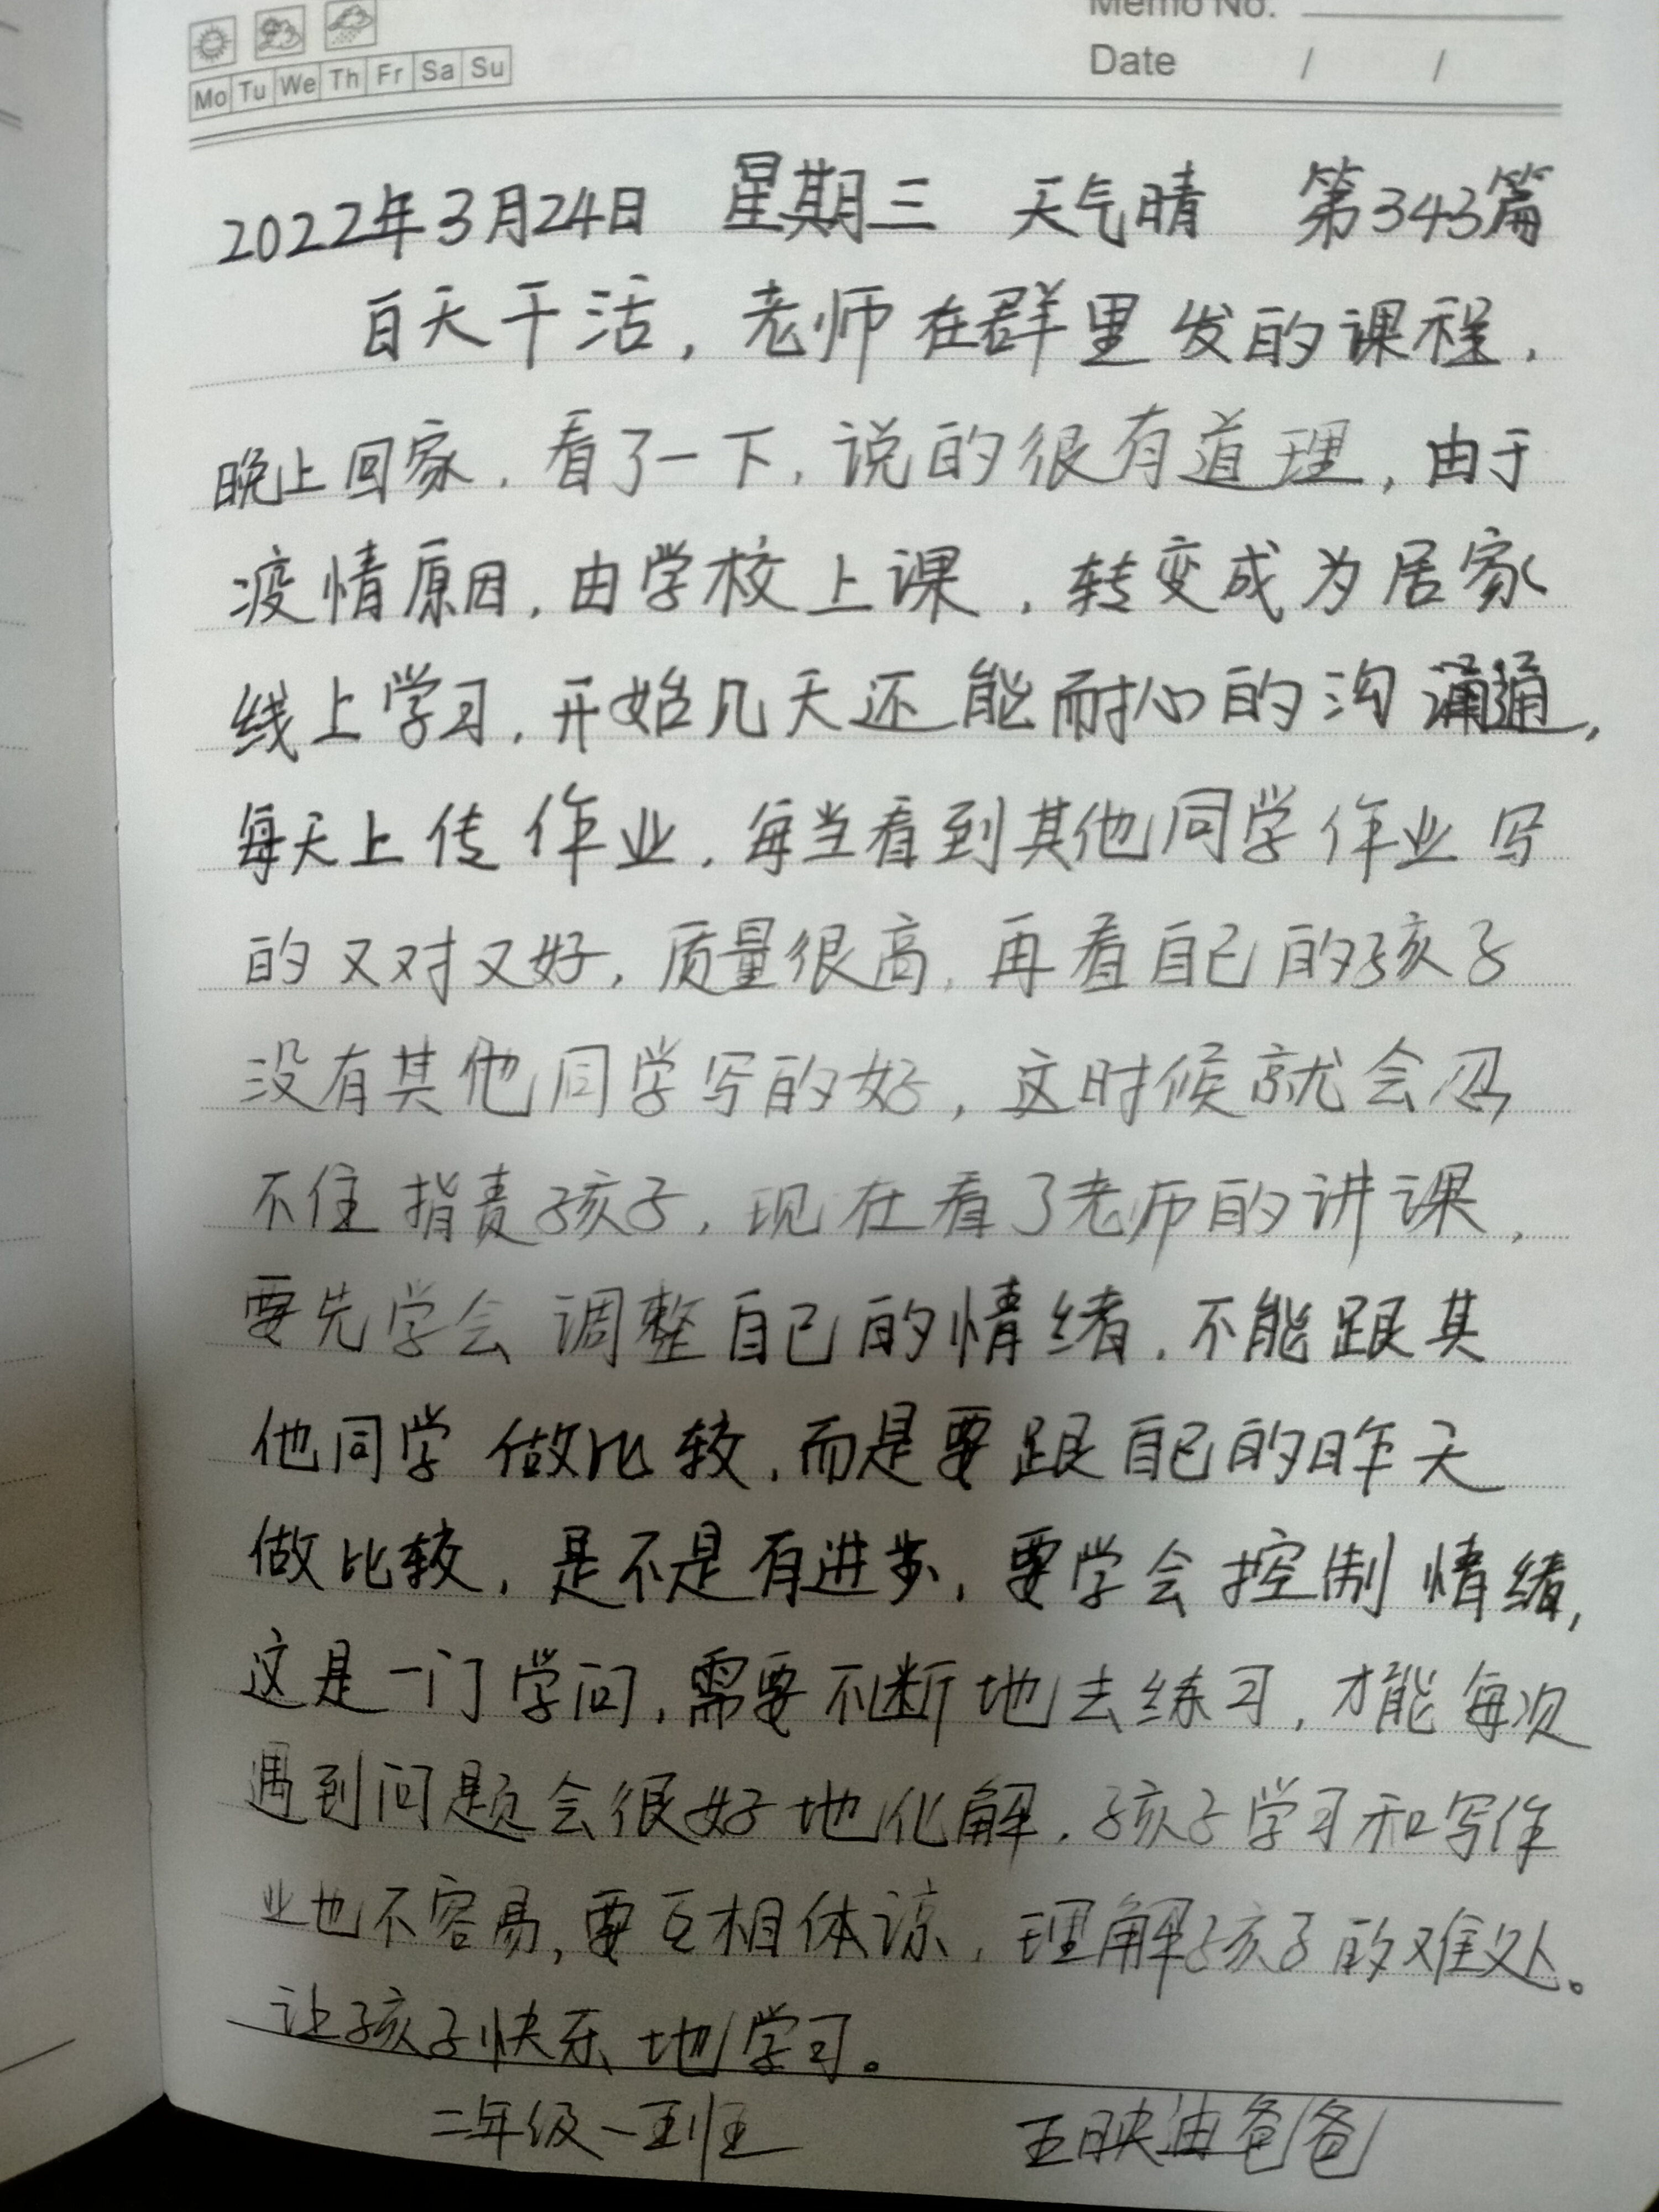 Memo No.
Mo Tu We Th Fr Sa Su
Date / /
2022年3月24日 星期三 天气晴 第343篇
白天干活，老师在群里发的课程，
晚上回家，看了一下，说的很有道理，由于
疫情原因，由学校上课，转变成为居家
线上学习，开始几天还能耐心的沟通，
每天上传作业，每当看到其他同学作业写
的又对又好，质量很高，再看自己的孩子
没有其他同学写的好，这时候就会忍
不住指责孩子，现在看了老师的讲课，
要先学会调整自己的情绪，不能跟其
他同学做比较，而是要跟自己的昨天
做比较，是不是有进步，要学会控制情绪，
这是一门学问，需要不断地去练习，才能每次
遇到问题会很好地化解，孩子学习和写作
业也不容易，要互相体谅，理解孩子的难处。
让孩子快乐地学习。
二年级一班 王映迪爸爸